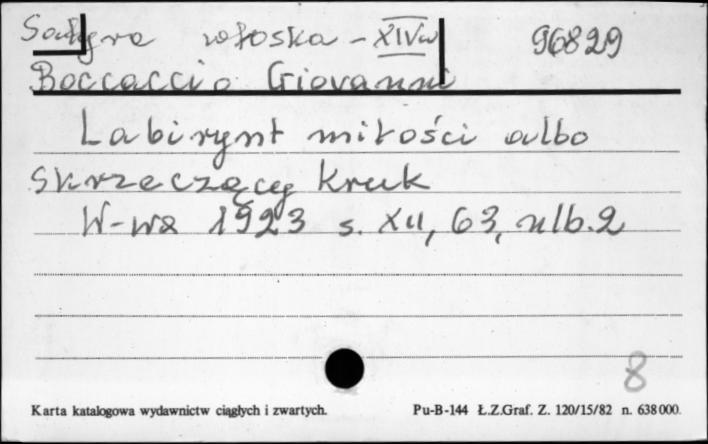 Satyra włoska - XIV w
96829
Boccaccio Giovanni
Labirynt miłości albo
skrzeczący kruk
W-wa 1923 s. XII, 63, nlb. 2
8
Karta katalogowa wydawnictw ciągłych i zwartych.
Pu-B-144 Ł.Z.Graf. Z. 120/15/82 n. 638000.